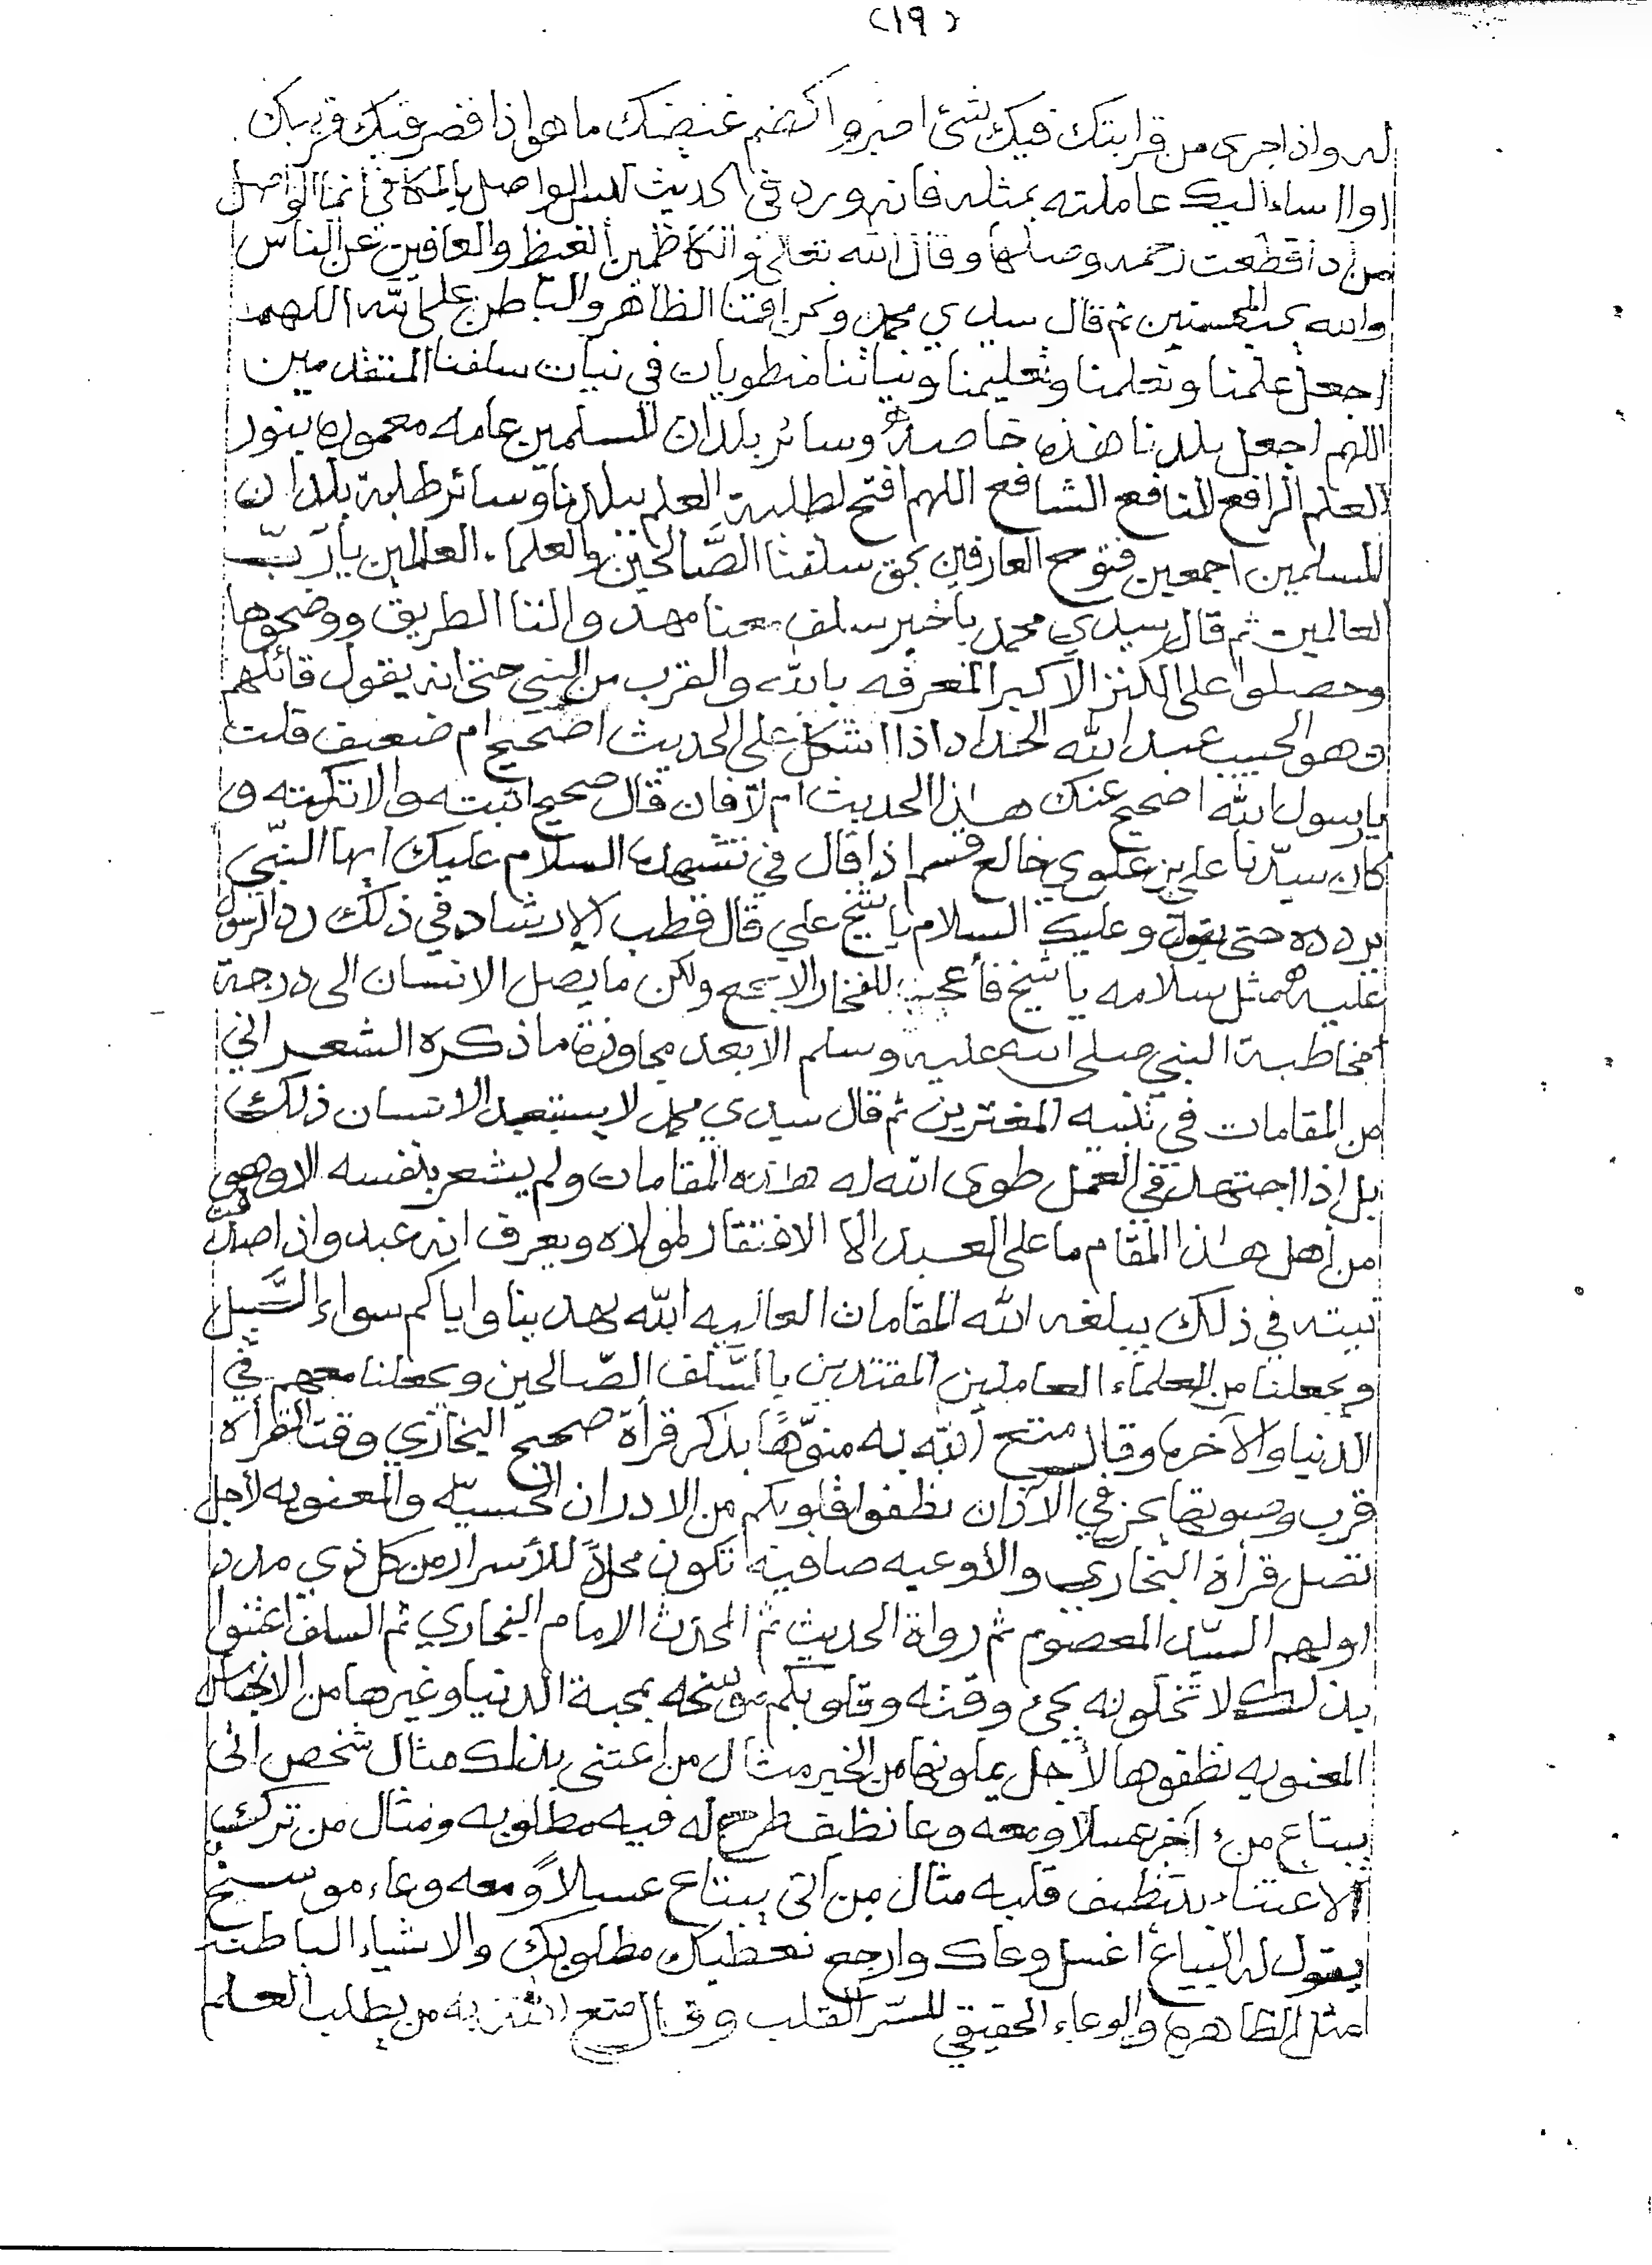 (١٩)
له واذا جرى من قرابتك فيك شئ اصبر واكضم غيضك ما هو اذا قصر فيك قريبك
او اساء اليك عاملته بمثله فانه ورد في الحديث ليس الواصل بالمكافي انما الواصل
من اذا قطعت رحمه وصلها وقال الله تعالى والكاظمين الغيظ والعافين عن الناس
والله يحب المحسنين ثم قال سيدي محمد ونحن اقمنا الظاهر والباطن على الله اللهم
اجعل علمنا وتعلمنا وتعليمنا ونياتنا منطويات في نيات سلفنا المتقدمين
اللهم اجعل بلدنا هذه خاصة وسائر بلدان المسلمين عامه معموره بنور
العلم الرافع النافع الشافع اللهم افتح لطلبة العلم ببلدنا وسائر طلبة بلدان
المسلمين اجمعين فتوح العارفين بحق سلفنا الصَّالحين والعلماء العالمين يا ربّ
العالمين ثم قال سيدي محمد يا خير سلف معنا مهدوا لنا الطريق ووضحوها
وحصلوا على الكنز الاكبر المعرفه بالله والقرب من النبي حتى انه يقول قائلهم
وهو الحبيب عبد الله الحداد اذا اشكل علي الحديث اصحيح ام ضعيف قلت
يا رسول الله اصحيح عنك هذا الحديث ام لا فان قال صحيح اثبته والا تركته و
كان سيّدنا علي بن علوي خالع قسم اذا قال في تشهده السلام عليك ايها النبي
يردده حتى يقول وعليك السلام يا شيخ علي قال قطب الارشاد في ذلك رد الرسول
عليه بمثل سلامه يا شيخ فأعجب للفخار الاجمع ولكن ما يصل الانسان الى درجة
مخاطبة النبي صلى الله عليه وسلم الا بعد مجاوزة ما ذكره الشعراني
من المقامات في تنبيه المغترين ثم قال سيدي محمد لا يستبعد الانسان ذلك
بل اذا اجتهد في العمل طوى الله له هذه المقامات ولم يشعر بنفسه الا وهو
من أهل هذا المقام ما على العبد الا الافتقار لمولاه ويعرف انه عبد واذا صدقت
نيته في ذلك يبلغه الله المقامات العاليه الله يهدينا واياكم سواء السَّبيل
ويجعلنا من العلماء العاملين المقتدين بالسَّلف الصّالحين ويجعلنا معهم في
الدنيا والآخره وقال متع الله به منوّهًا بذكر قرأة صحيح البخاري وقت القرأه
قرب وصوتها يحن في الآذان نظفوا قلوبكم من الادران الحسيّه والمعنويه لأجل
تصل قرأة البخاري والأوعيه صافيه تكون محلاً للأسرار من كل ذي مدد
اولهم السيّد المعصوم ثم رواة الحديث ثم المحدث الامام البخاري ثم السلف اعتنوا
بذلك لا تخلونه يجئ وقته وقلوبكم موسّخه بمحبة الدنيا وغيرها من الانجاس
المعنويه نظفوها لأجل يملونها من الخير مثال من اعتنى بذلك مثال شخص اتى
يبتاع من آخر عسلا ومعه وعا نظيف طرح له فيه مطلوبه ومثال من ترك
الاعتناء بتنظيف قلبه مثال من اتى يبتاع عسلاً ومعه وعاء موسخ
يقول له البياع اغسل وعاك وارجع نعطيك مطلوبك والاشياء الباطنه
مثل الظاهره والوعاء الحقيقي للسّر القلب وقال متع الله به من يطلب العلم